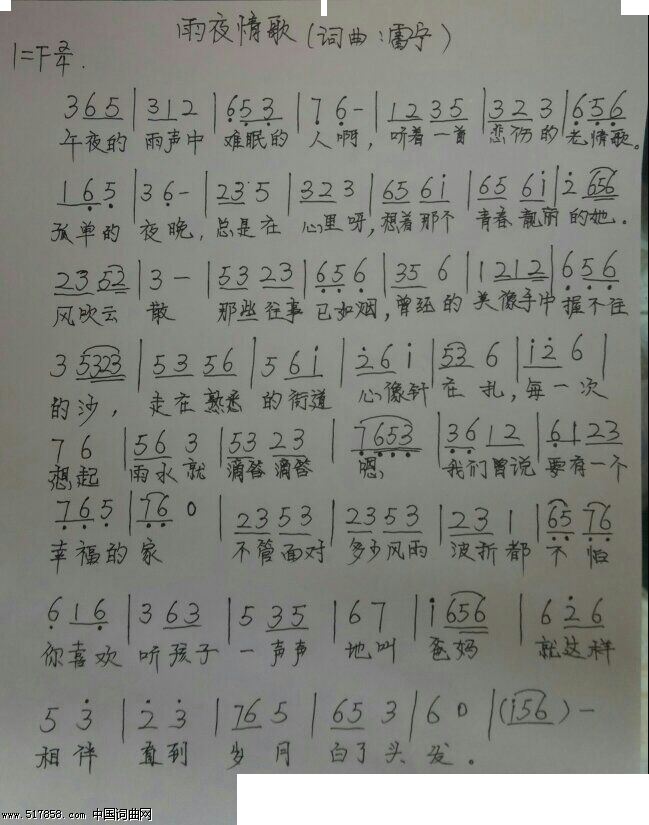 雨夜情歌(词曲:雷宇)
1=F 2/4.
3 6 5 | 3 1 2 | 6 5 3 | 7 6 - | 1 2 3 5 | 3 2 3 | 6 5 6
午夜的 雨声中 难眠的 人啊,听着一首 悲伤的 老情歌。
1 6 5 | 3 6 - | 2 3 5 | 3 2 3 | 6 5 6 i | 6 5 6 i | 2 6 5 6
孤单的 夜晚,总是在 心里呀,想着那个 青春靓丽的她.
2 3 5 2 | 3 - | 5 3 2 3 | 6 5 6 | 3 5 6 | 1 2 1 2 | 6 5 6
风吹云 散 那些往事 已如烟,曾经的 美像手中 握不住
3 5 3 2 3 | 5 3 5 6 | 5 6 i | 2 6 i | 5 3 6 | i 2 6 |
的沙, 走在熟悉 的街道 心像针 在 扎,每一次
7 6 | 5 6 3 | 5 3 2 3 | 7 6 5 3 | 3 6 1 2 | 6 1 2 3
想起 雨水就 滴答滴答 嗯, 我们曾说 要有一个
7 6 5 | 7 6 0 | 2 3 5 3 | 2 3 5 3 | 2 3 1 | 6 5 7 6
幸福的 家 不管面对 多少风雨 波折都 不 怕
6 1 6 | 3 6 3 | 5 3 5 | 6 7 | i 6 5 6 | 6 2 6
你喜欢 听孩子 一声声 地叫 爸妈 就这样
5 3 | 2 3 | 7 6 5 | 6 5 3 | 6 0 | (i 5 6) -
相伴 直到 岁月 白了头 发。
www.517858.com 中国词曲网